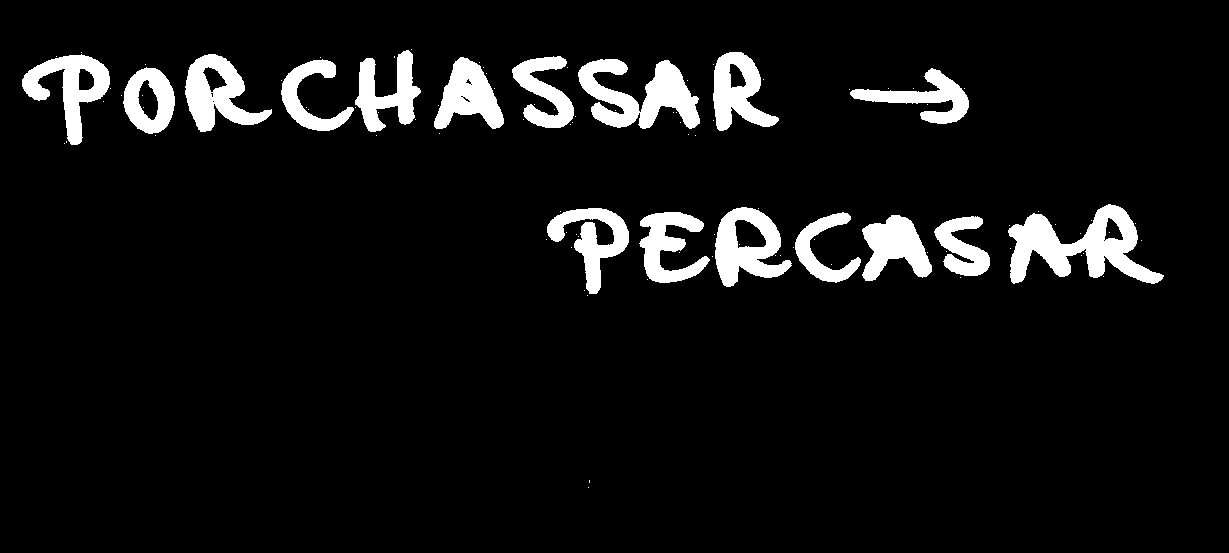 PORCHASSAR →
PERCASAR